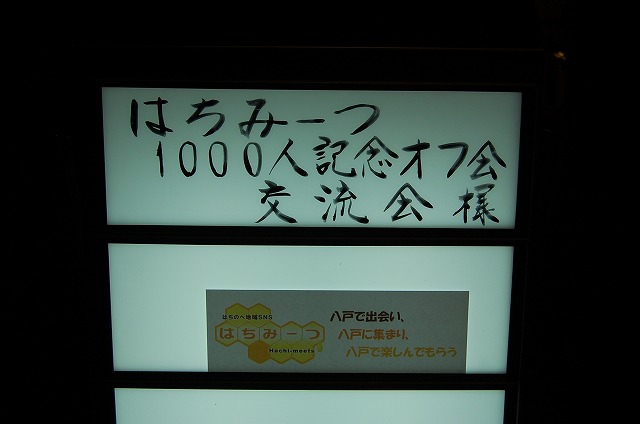 はちみーつ
1000人記念オフ会
交流会様
はちのへ地域SNS
はちみーつ
Hachi-meets
八戸で出会い、
八戸に集まり、
八戸で楽しんでもらう